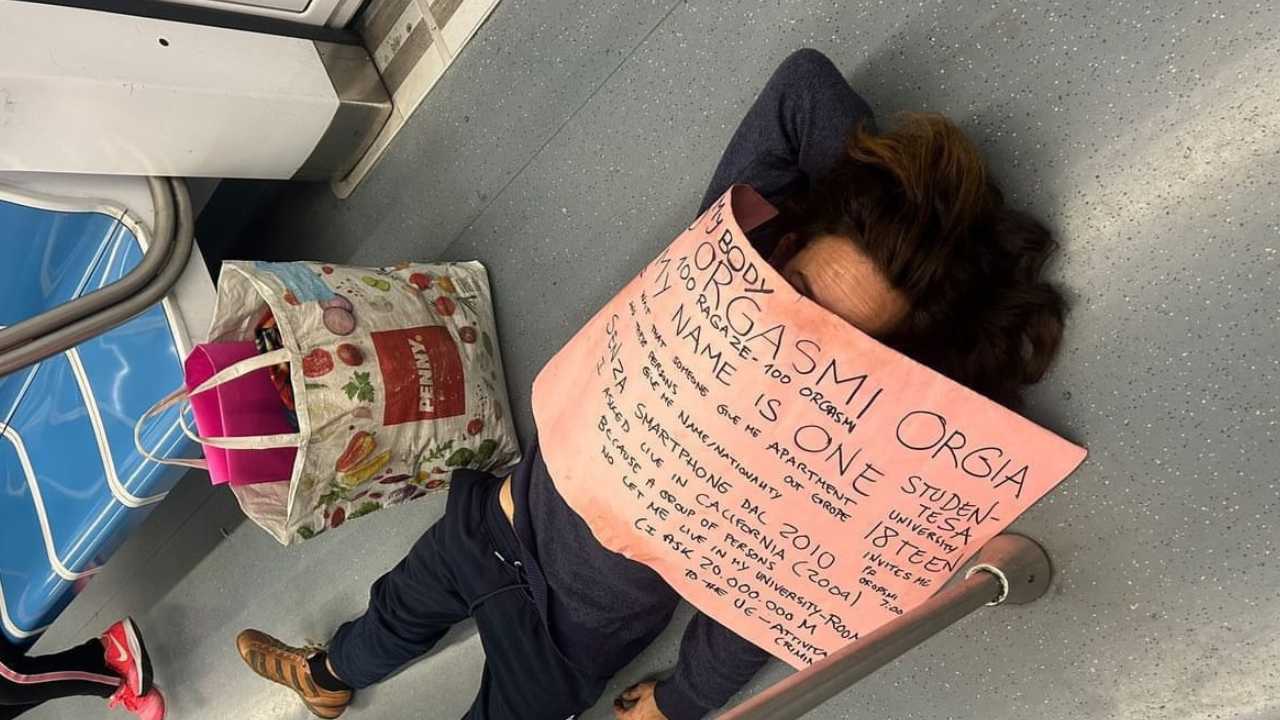 My BODY
ORGASMI ORGIA
100 RAGAZZE. 100 ORGASMI
MY NAME IS ONE
STUDEN-
TESA
UNIVERSITY
18TEEN
INVITES ME
ORGASMI 7:00
WAIT THAT SOMEONE GIVE ME APARTMENT
PERSONS OUT EUROPE
GIVE ME NAME/NATIONALITY
SENZA SMARTPHONE DAL 2010
I ASKED LIVE IN CALIFORNIA (2009)
BECAUSE A GROUP OF PERSONS
NO LET ME LIVE IN MY UNIVERSITY-ROOM
(I ASK 20.000.000 M
TO THE UE - ATTIVITA
CRIMIN
PENNY.